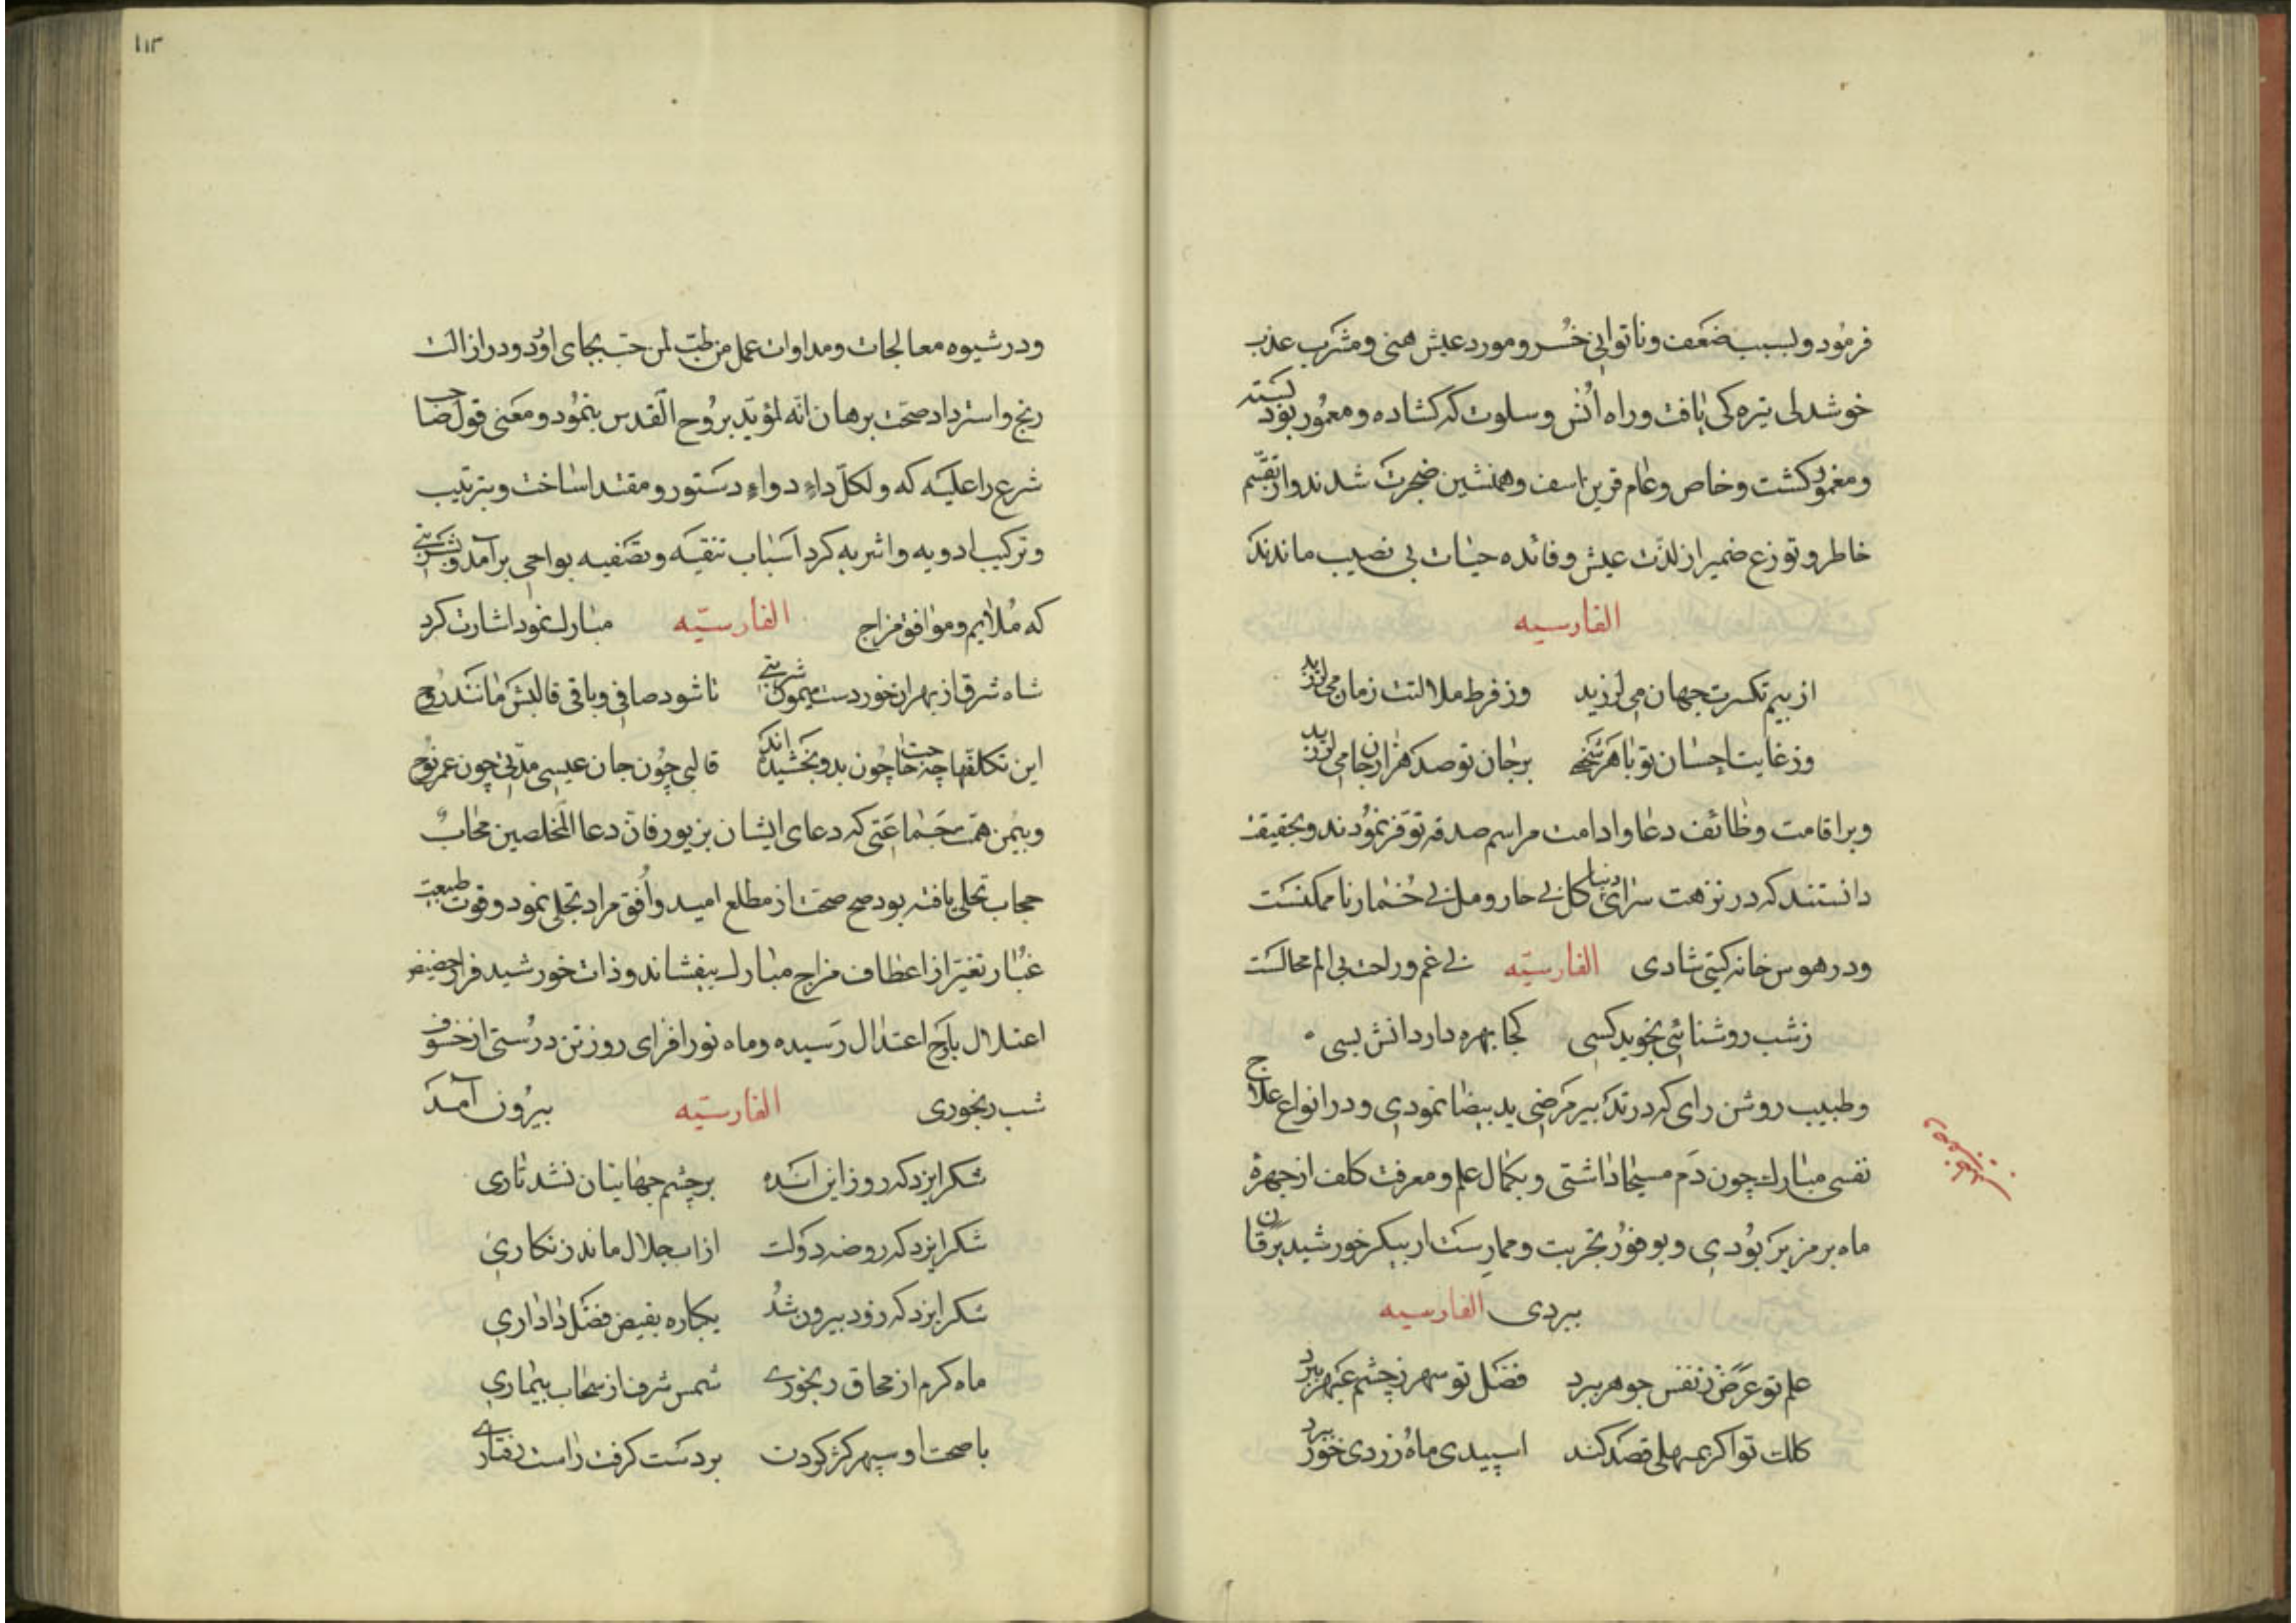 فرمود و بسبب ضعف و ناتوانی خسرو مورد عیش هنی و مشرب عذب
خوشدلی تیره کی یافت و راه انس و سلوت که کشاده و معمور بود بسته
و مغمور کشت و خاص و عام قرین اسف و همنشین ضجرت شدند و از تقسّم
خاطر و توزع ضمیر از لذت عیش و فائده حیات بی نصیب ماندند
الفارسیه
از بیم تکسرت جهان می لرزید وز فرط ملالتت زمان می لرزید
وز غایت احسان تو با هر شخصی بر جان تو صد هزار جان می لرزید
و بر اقامت وظائف دعا و ادامت مراسم صدقه توفر نمودند و بحقیقت
دانستند که در نزهت سرای دنیا کل بی خار و مل بی خمار ناممکنست
و در هوس خانه کیتی شادی الفارسیّه بی غم و راحت بی الم محالست
ز شب روشنائی نجوید کسی کجا بهره دارد دانش بسی
و طبیب روشن رای که در تدبیر مرضی ید بیضا نمودی و در انواع علاج
نفسی مبارک چون دم مسیحا داشتی و بکمال علم و معرفت کلف از چهرهٔ
ماه برمزیر بودی و بوفور تجربت و ممارست از پیکر خورشید یرقان
ببردی الفارسیه
علم تو عرض ز نفس جوهر ببرد فضل تو سهر ز چشم عبهر ببرد
کلک تو اکر بمهلی قصد کند اسپیدی ماه و زردی خور ببرد
۱۱۳
و در شیوه معالجات و مداوات عمل من طبّ لمن حبّ بجای اورد و در ازالت
رنج و استرداد صحت برهان انّه لمؤیّد بروح القدس بنمود و معنی قول صاحب
شرع را علیه که و لکلّ داءٍ دواءٍ دستور و مقتدا ساخت و بترتیب
و ترکیب ادویه و اشربه کرد اسباب تنقیه و تصفیه بواجبی برآمد و بشربتی
که ملایم و موافق مزاج الفارسیّه مبارک نمود اشارت کرد
شاه شرق از بهر ان خورد دست میمون شربتی تا شود صافی و باقی قالبش مانند روح
این تکلفها چه حاجت چون بدو بخشیده اند قالبی چون جان عیسی مدّتی چون عمر نوح
و بیمن همّت جماعتی که دعای ایشان بزیور فانّ دعا المخلصین مجابٌ
حجاب تحلی یافته بود صبح صحت از مطلع امید و افق مراد تجلی نمود و قوت طبیعت
غبار تغیّر از اعطاف مزاج مبارک بیفشاند و ذات خورشید فر از حضیض
اعتلال باوج اعتدال رسیده و ماه نور افزای روز تن درستی از خسوف
شب رنجوری الفارسیّه بیرون آمد
شکر ایزد که روز این انده بر چشم جهانیان نشد تاری
شکر ایزد که روضه دولت از اب جلال ماند زنکاری
شکر ایزد که زود بیرون شد یکباره بفیض فضل داداری
ماه کرم از محاق رنجوری شمس شرف از سحاب بیماری
با صحت او سپهر کژ کودن بر دست کرفت راست رفتاری